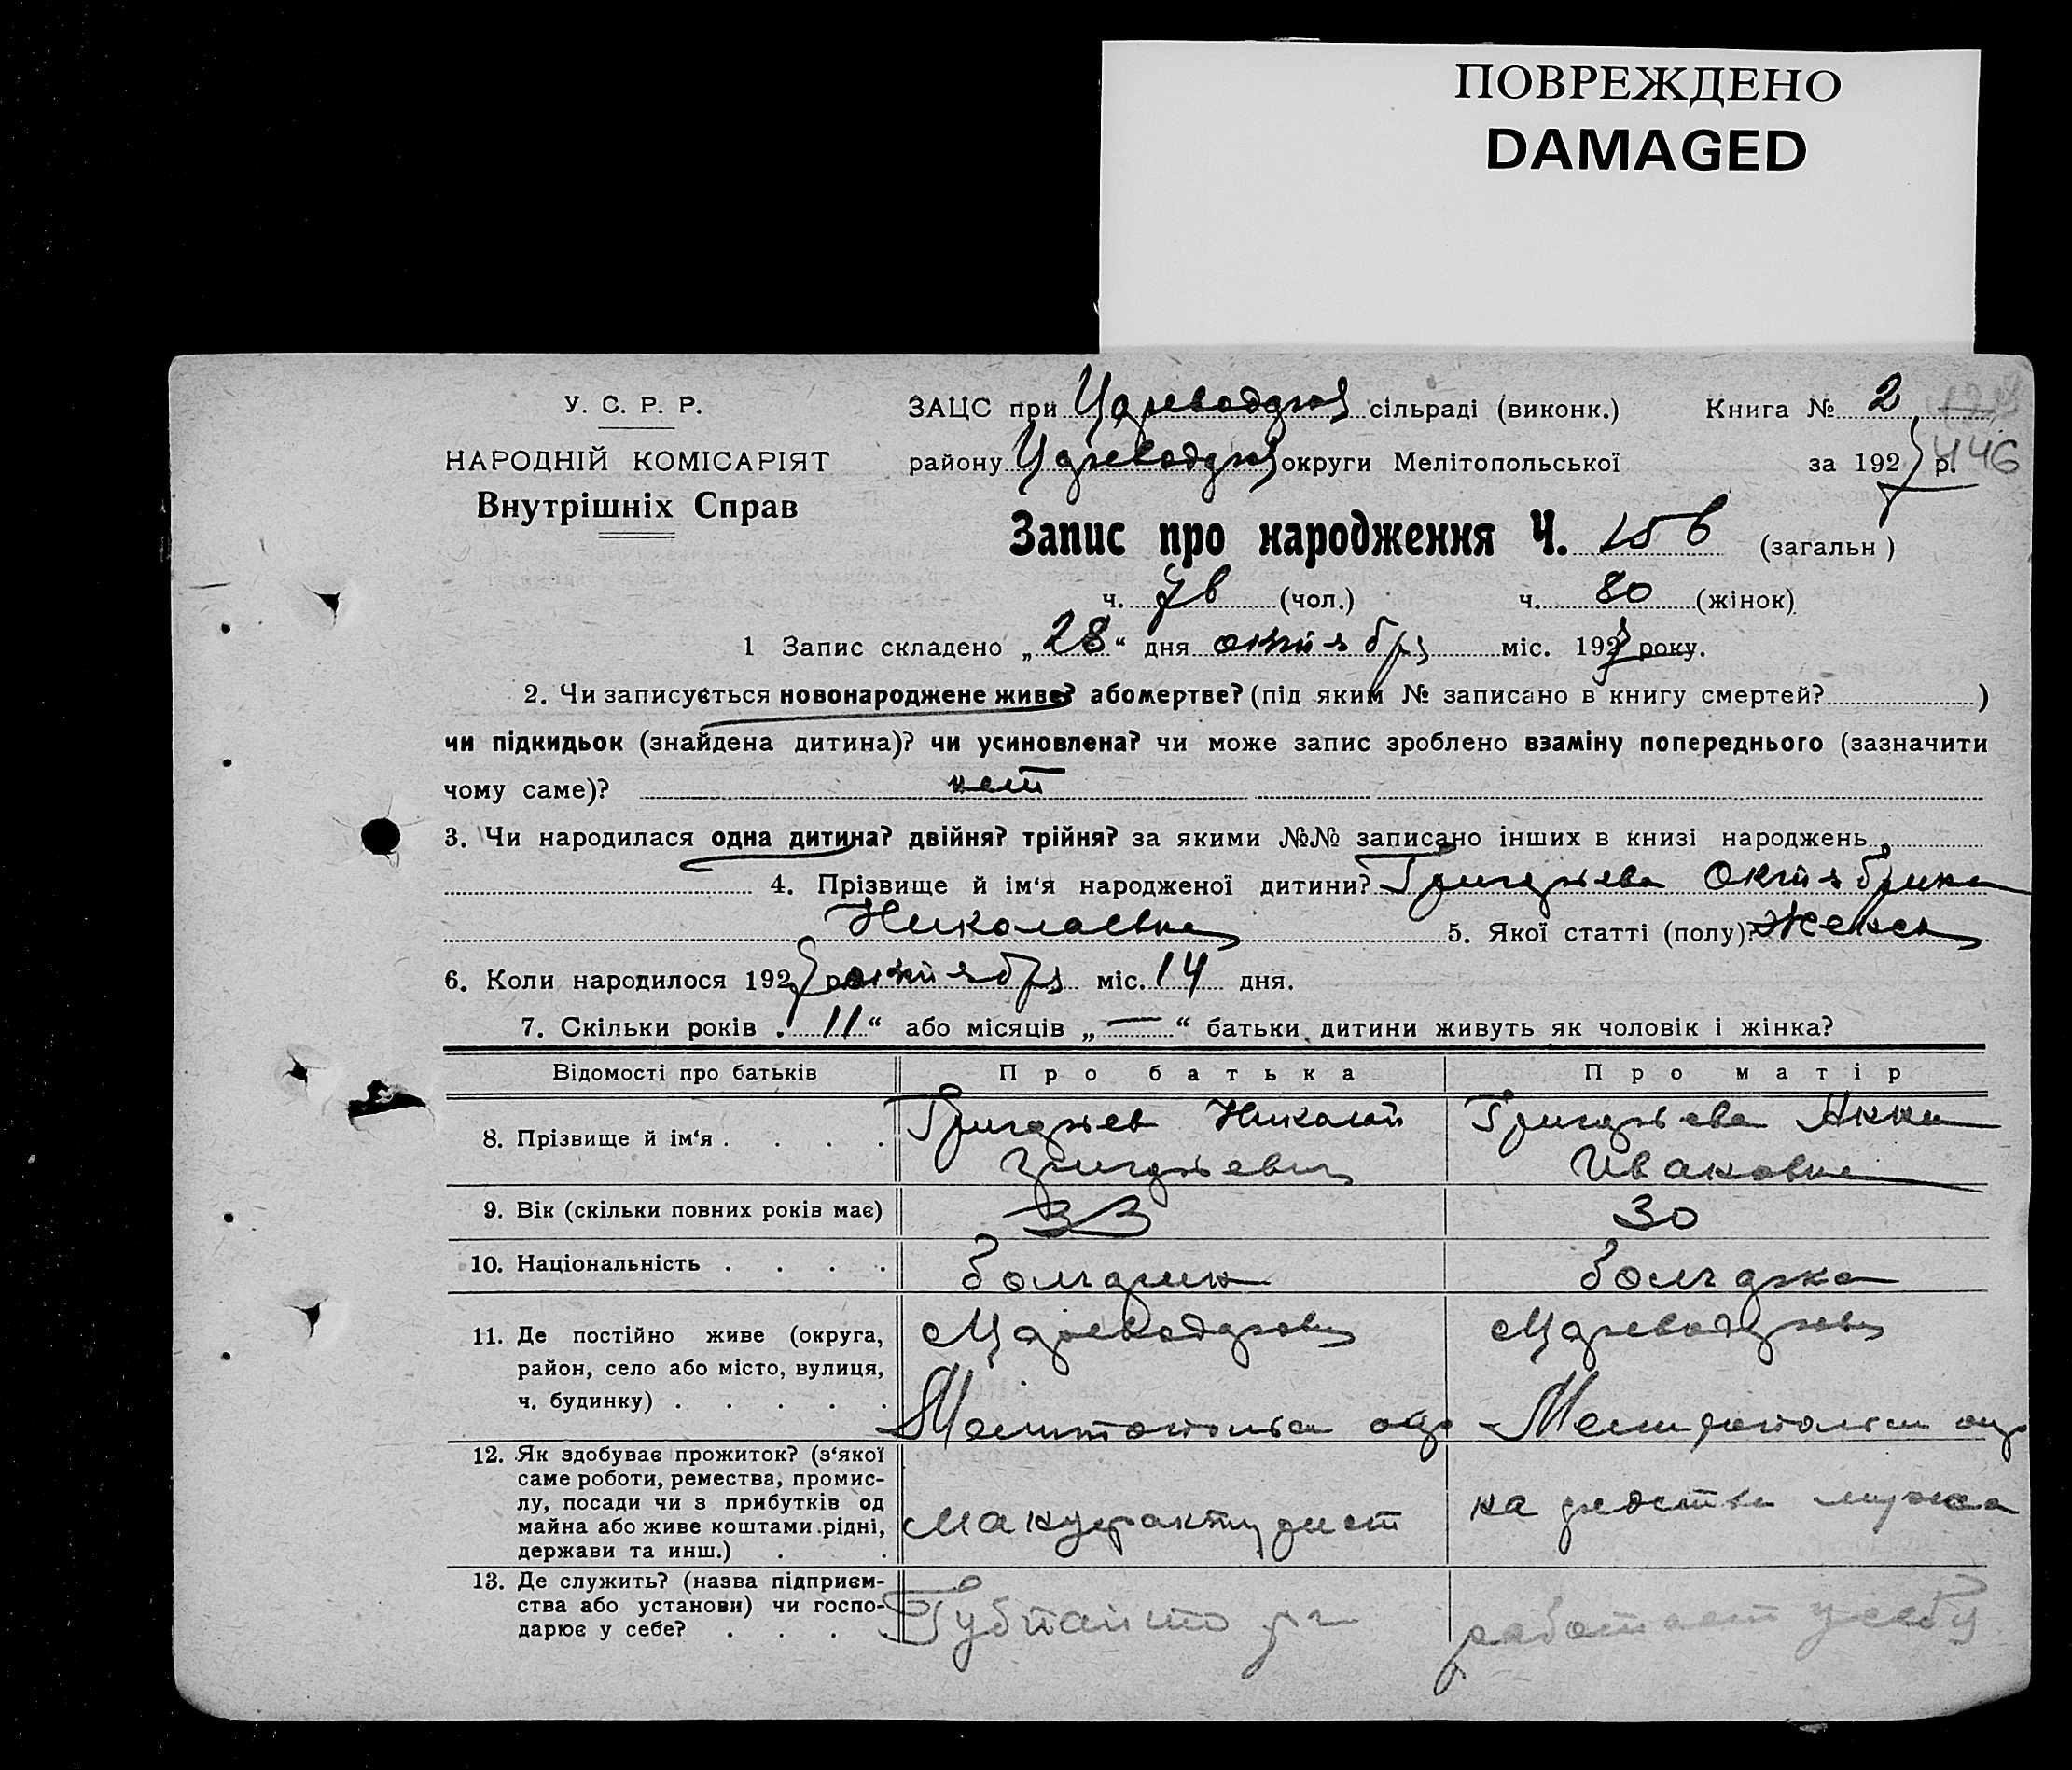 ПОВРЕЖДЕНО
DAMAGED
У. С. Р. Р.
НАРОДНІЙ КОМІСАРІЯТ
Внутрішніх Справ
ЗАЦС при Цареводар сільраді (виконк.) Книга № 2
району Цареводар округи Мелітопольської за 1927 р. 446
Запис про народження Ч. 156 (загальн)
ч. 76 (чол.) ч. 80 (жінок)
1 Запис складено „28“ дня октября міс. 1927 року.
2. Чи записується новонароджене живе? або мертве? (під яким № записано в книгу смертей? )
чи підкидьок (знайдена дитина)? чи усиновлена? чи може запис зроблено взаміну попереднього (зазначити
чому саме)? нет
3. Чи народилася одна дитина? двійня? трійня? за якими №№ записано інших в книзі народжень
4. Прізвище й ім‘я народженої дитини? Григорьева Октябрина
Николаевна 5. Якої статті (полу)? Женск
6. Коли народилося 1927 р. октября міс. 14 дня.
7. Скільки років „11“ або місяців „—“ батьки дитини живуть як чоловік і жінка?
Відомості про батьків Про батька Про матір
8. Прізвище й ім‘я . . . . Григорьев Николай Григорьева Анна
Григорьевич Ивановна
9. Вік (скільки повних років має) 33 30
10. Національність . . . . болгарин болгарка
11. Де постійно живе (округа,
район, село або місто, вулиця,
ч. будинку) . . . . .
Цареводаровка Цареводаровка
Мелитопольск окр Мелитопольск окр
12. Як здобуває прожиток? (з‘якої
саме роботи, ремества, промис-
лу, посади чи з прибутків од
майна або живе коштами рідні,
держави та инш.) . .
мануфактурист на средства мужа
13. Де служить? (назва підприєм-
ства або установи) чи госпо-
дарює у себе? . . . .
работает у себя